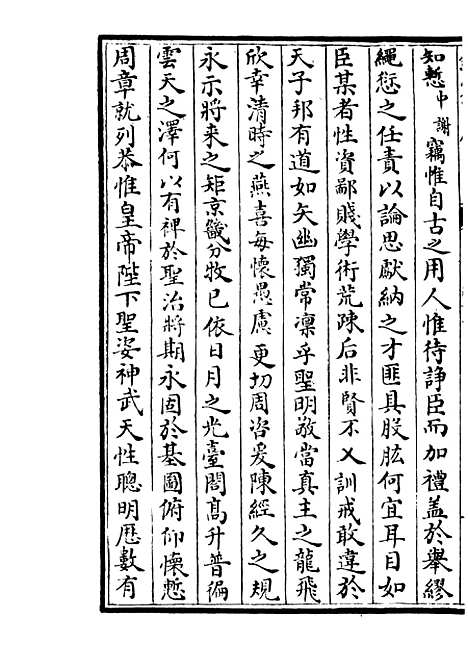 知慙中謝竊惟自古之用人惟待諍臣而加禮蓋於舉繆
繩愆之任責以論思獻納之才匪具股肱何宜耳目如
臣某者性資鄙賤學術荒疎后非賢不乂訓戒敢違於
天子邦有道如矢幽獨常凛乎聖明敬當真主之龍飛
欣幸清時之燕喜每懷愚慮更切周咨爰陳經久之規
永示將来之矩京畿分牧已依日月之光臺閣髙升普徧
雲天之澤何以有裨於聖治將期永固於基圖俯仰懷慙
周章就列恭惟皇帝陛下聖姿神武天性聰明厯數有